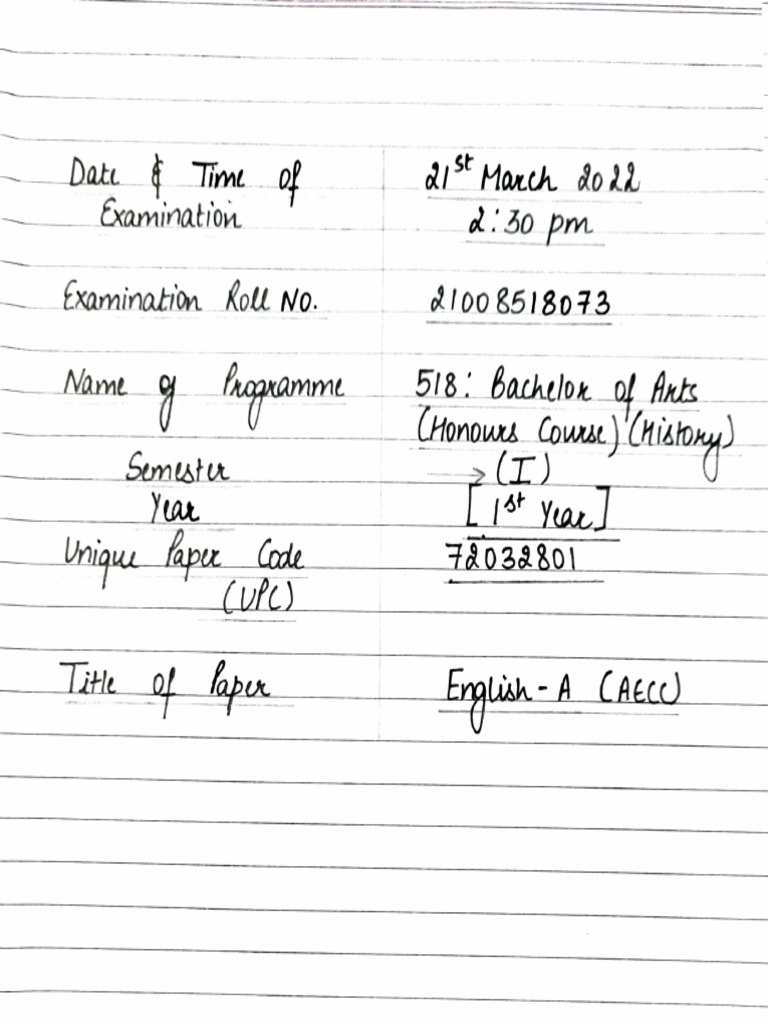 Date & Time of 21st March 2022
Examination 2:30 pm
Examination Roll No. 21008518073
Name of Programme 518: Bachelor of Arts
(Honours Course) (History)
Semester → (I)
Year [1st Year]
Unique Paper Code 72032801
(UPC)
Title of Paper English - A (AECC)